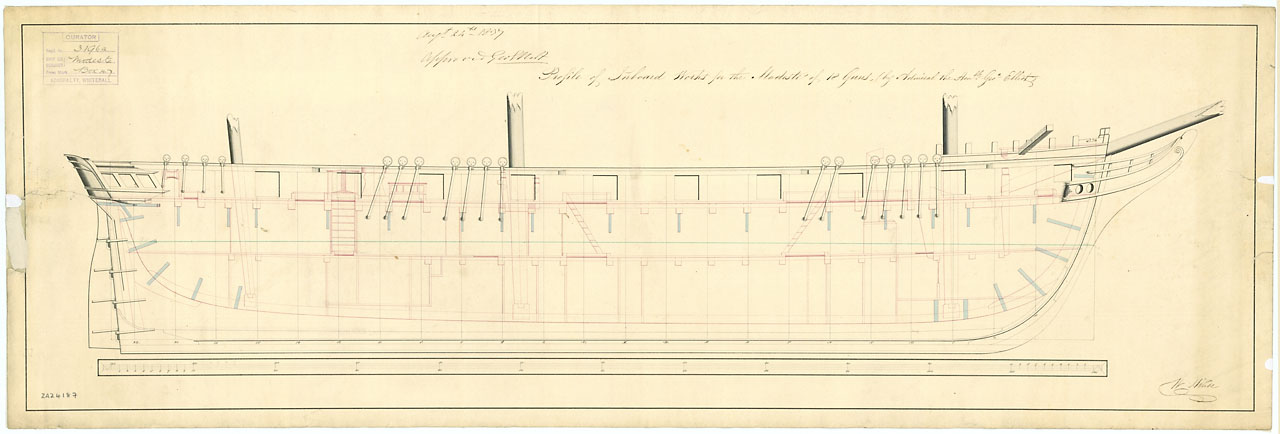 CURATOR
3196A
Modeste
Box 47
ADMIRALTY, WHITEHALL
Augt 24th 1837
Approved Geo Elliot
Profile of Inboard Works for the Modeste of 18 Guns (by Admiral the Honble Geo Elliot)
ZA24187